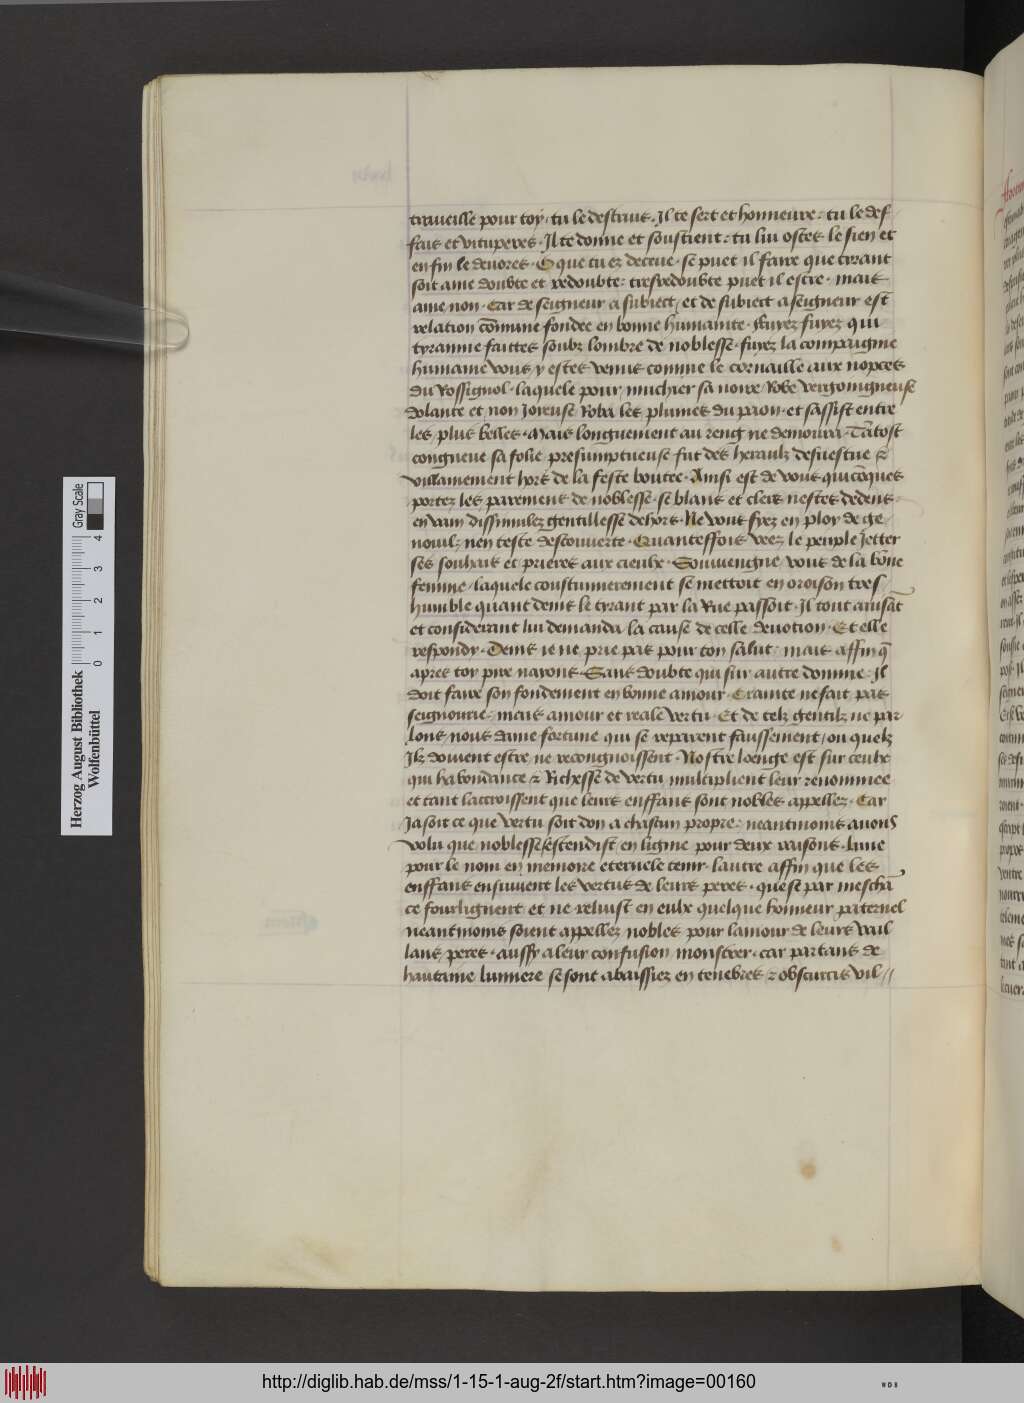 traveille pour toy, tu le destruis. Il te sert et honneure: tu le def-
fais et vituperes. Il te donne et soustient: tu lui ostes le sien et
en fin le devores. O que tu ez deceue. se puet il faire que tirant
soit ame doubte et redoubte: tresredoubte puet il estre. mais
ame non. Car de seigneur a subiect, et de subiect a seigneur est
relation cōmune fondee en bonne humanite. Fuyez fuyez qui
tyrannie faittes soubz lombre de noblesse. fuyez la compaignie
humaine vous y estes venus comme le cornaille aux nopces
du Rossignol. laquele pour muchier sa noire Robe vergoingneuse
dolante et non Ioieuse Roba les plumes du paon. et sassist entre
les plus belles. Mais longuement au reng ne demoura. Tātost
congneue sa folie presumptueuse fut des heraulz desuestue &
villainement hors de la feste boutee. Ainsi est de vous qui cōques
portez les paremens de noblesse. se blans et clers nestes dedens.
en vain dissimulez gentillesse dehors. Ne vous fyez en ploy de ge-
nouilz nen teste descouverte. Quanteffois veez le peuple Ietter
ses souhais et prieres aux cieulx. Souviengne vous de la bōne
femme, laquele coustumierement se mettoit en oroison tres
humble quant denis le tyrant par la Rue passoit. Il tout auisāt
et considerant lui demanda la cause de celle devotion. Et elle
respondy. Denis ie ne prie pas pour ton salut. mais affin q̄
apres toy pire nayons. Sans doubte qui sur autre domine. Il
doit faire son fondement en bonne amour. Crainte ne fait pas
seignourie. mais amour et reale vertu. Et de telz gentilz ne par-
lons nous dame fortune qui se reparent faussement, ou quelz
Ilz doiuent estre, ne recongnoissent. Nostre loenge est sur ceulx
qui habondance & Richesse de vertu multiplient leur renommee
et tant laccroissent que leurs enffans sont nobles appellez. Car
Ia soit ce que vertu soit don a chascun propre: neantmoins auons
volu que noblesse sestendist en ligne pour deux raisons. Lune
pour le nom en memoire eternele tenir. lautre affin que les
enffans ensuivent les vertus de leurs peres. que se par meschā-
ce fourlignent et ne reluist en eulx quelque honneur paternel
neantmoins soient appellez nobles pour lamour de leurs vail-
lans peres. aussy a leur confusion monstrer. car partans de
haultaine lumiere se sont abaissiez en tenebres & obscurcis vil-//
Herzog August Bibliothek
Wolfenbüttel
0 1 2 3 4
Gray Scale
http://diglib.hab.de/mss/1-15-1-aug-2f/start.htm?image=00160